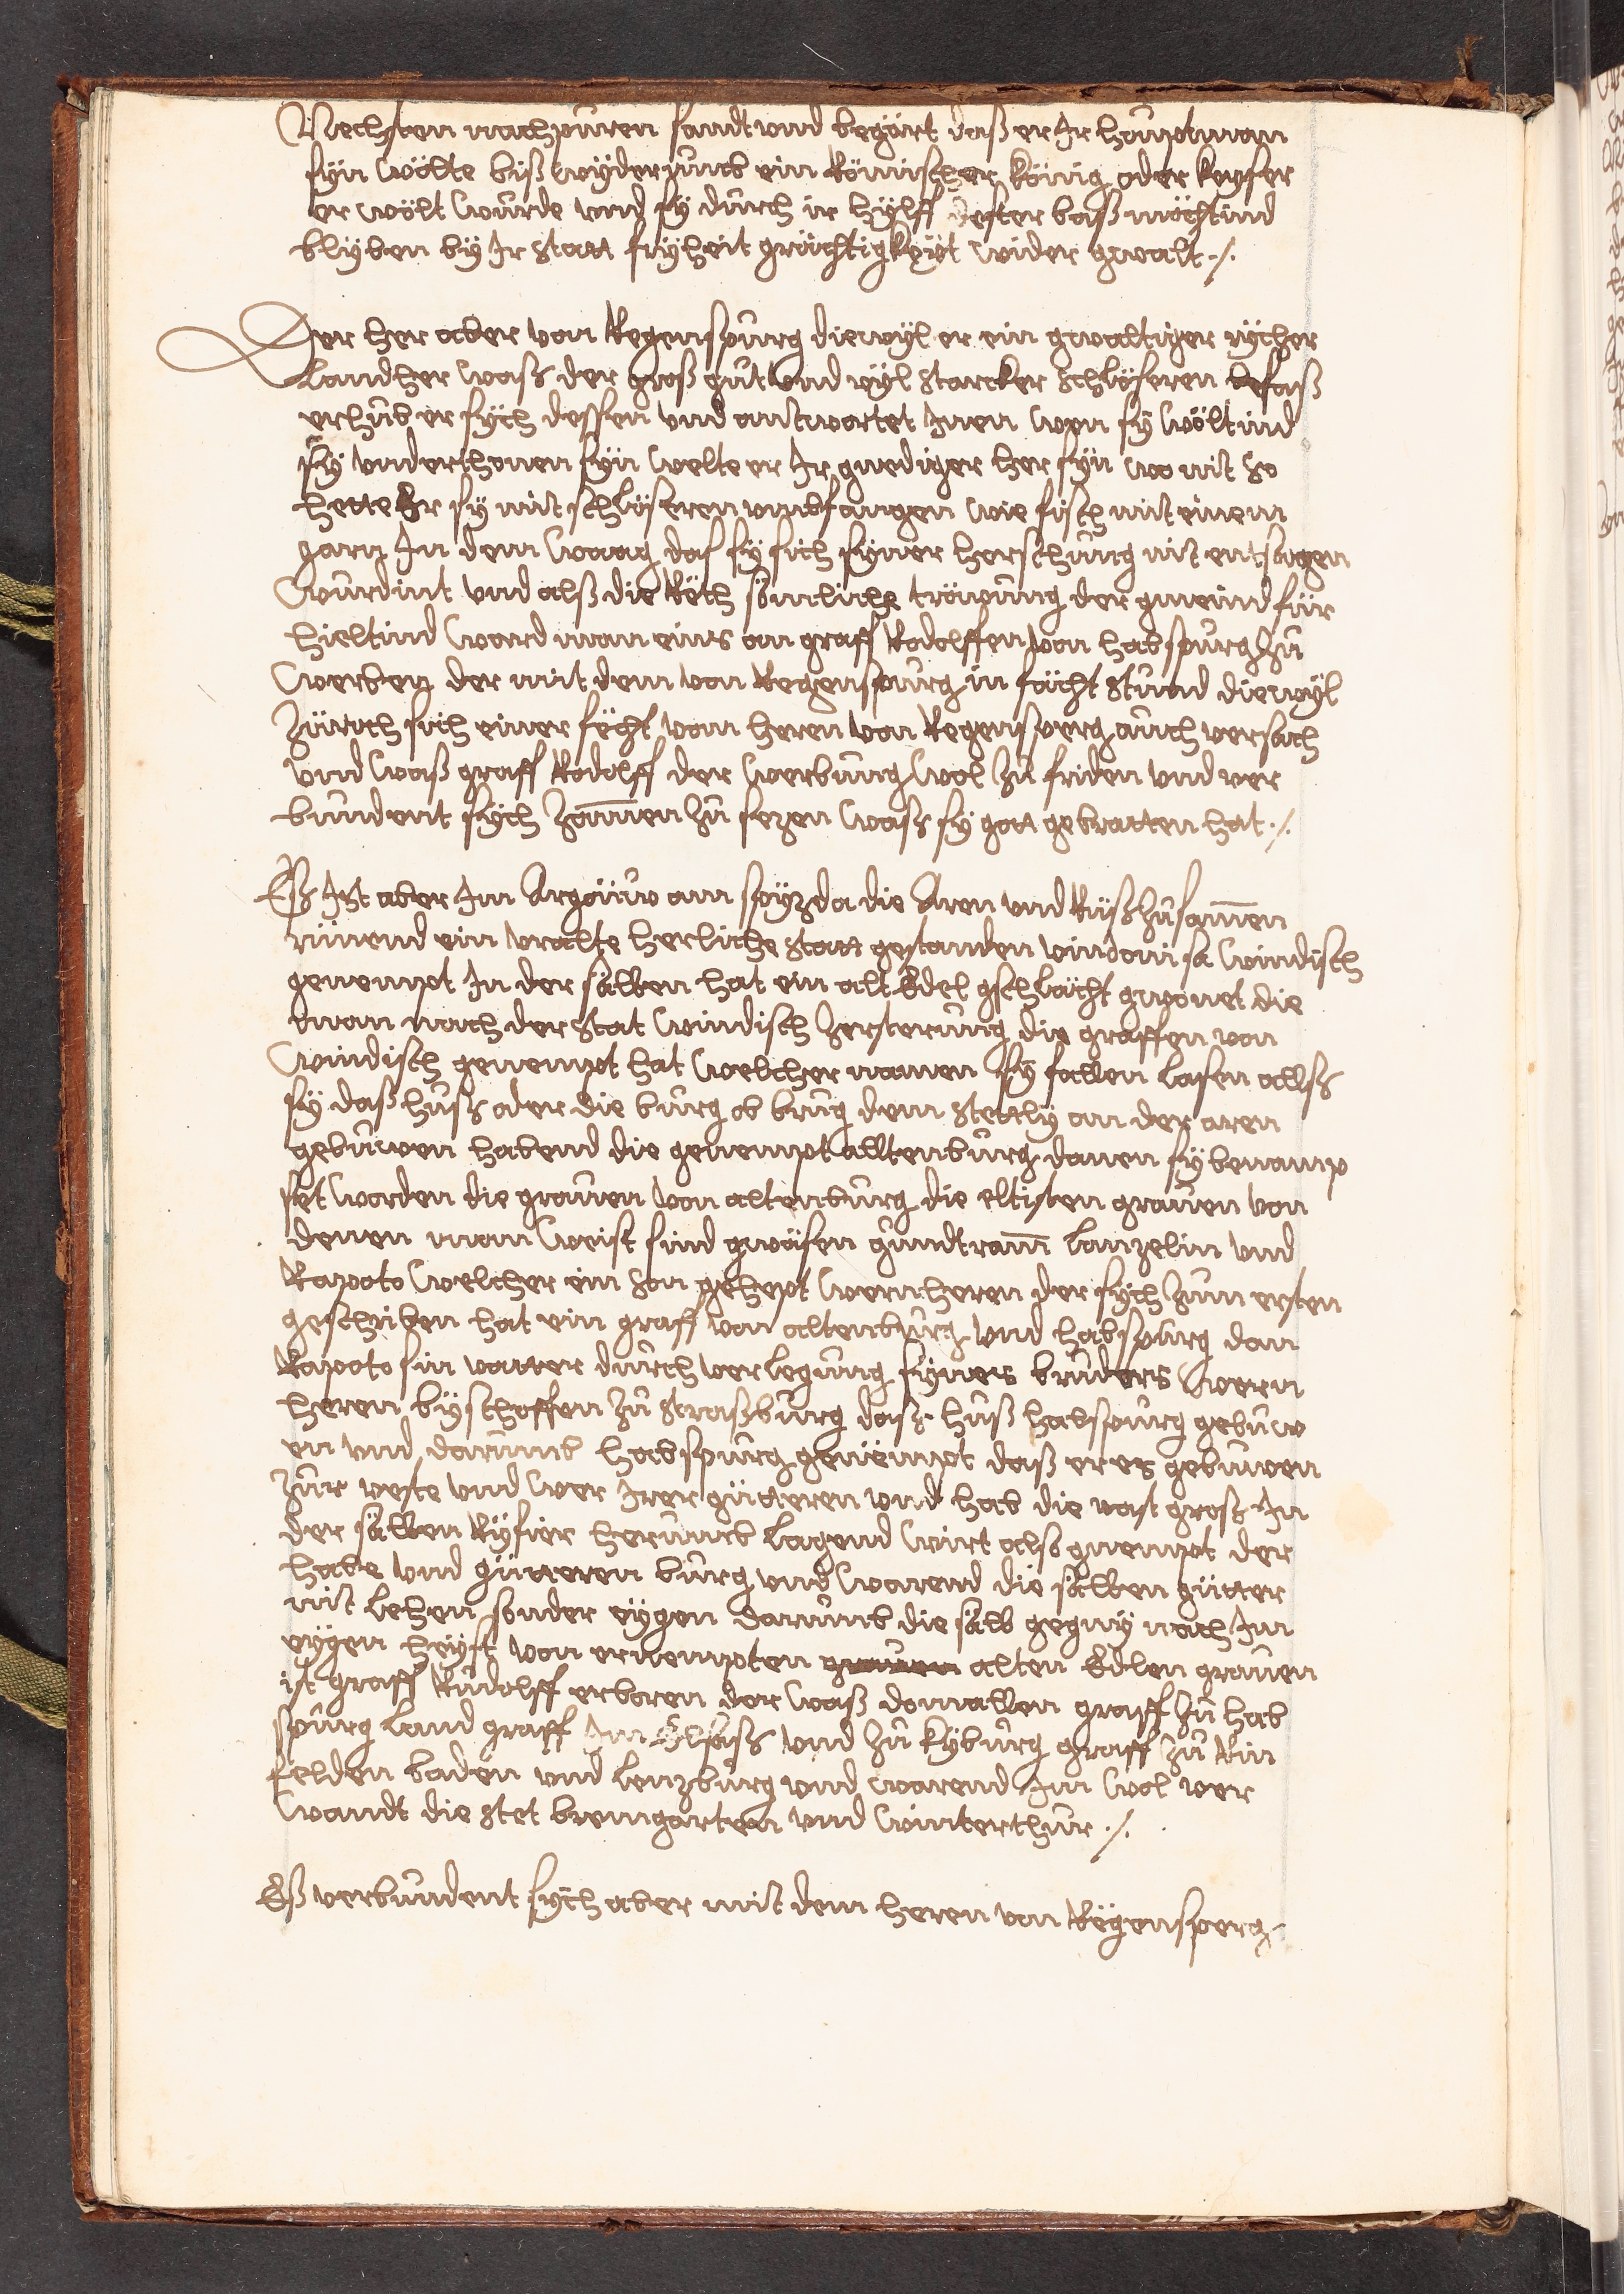 Nechsten nachpuren sandt und begärt daß er Ir houptman
syn wölte biß wyderumb ein Römischer König oder keyser
er wölt wurde und sy durch ir hylff dester baß möchtind
blyben by Ir statt fryheit grächtigkeyt wider gwalt ./.
Der her aber von Regenspurg diewyl er ein gwaltiger rycher
Landher waß der groß gut und vyl starcker schlösseren besaß
erhub er sych dessen und antwortet Inen wen sy wöltind
sy underthonen syn welte er Ir gnediger her syn wo nit so
hette Er sy mit schlösseren umbfangen wie fisch mit einem
garn In dem waag daß sy sich syner herschung nit entsagen
wurdint und alß die Räth sömliche tröwung der gmeind für
hieltind ward man eins an graff Rodolffen von habspurg zu
werben der mit dem von Regenspurg in fächt stund diewyl
Zürich sich einer fächt vom heren von Regensperg auch versach
und waß graff Rodolff der werbung wol zu friden und ver
bundent sych zamen zu sezen waß sy gott gebratten hat ./.
Eß Ist aber Im Argöuw am spyz da die Aren und Rüß zusamen
rünend ein uralte herliche statt gestanden vindonissa windisch
genempt In der sälben hat ein alt Edel gschlächt gwonet die
man nach der stat windisch zersterung die graffen von
windisch genempt hat welcher namen sy fallen lasen allß
sy daß huß oder die burg ob brug dem stettly an der aren
gebuwen habend die genempt alltenburg danen sy benamp
set worden die grauen von altenburg die eltisten grauen von
denen man weist sind gwäsen gundtram lanzelin und
Rapoto welcher ein son gehept wernheren der sych zum ersten
geschriben hat ein graff von altenburg und habspurg dan
Rapoto sin vatter durch verlegung synes bruders wern
heren byschoffen zu straßburg daß huß habspurg gebuw
en und darumb habspurg genempt daß er es gebuwen
zur veste und wer Irer gütteren und hab die vast groß In
der sälben Ryfier herumb lagend wirt also gnempt der
habe und gütteren burg und warend die sälben gütter
nit lehen sonder eygen darumb die sälb gegny noch Im
eygen heyst von ernempten grauen alten Edlen grauen
ist graff Rudolff erboren der waß domallen graff zu hab
spurg land graff Im Elsaß und zu kyburg graff zu Rin
felden baden und lenzburg und warend Im wol ver
wandt die stet bremgarten und winterthur ./.
Eß verbundent sych aber mit dem heren von Regensperg